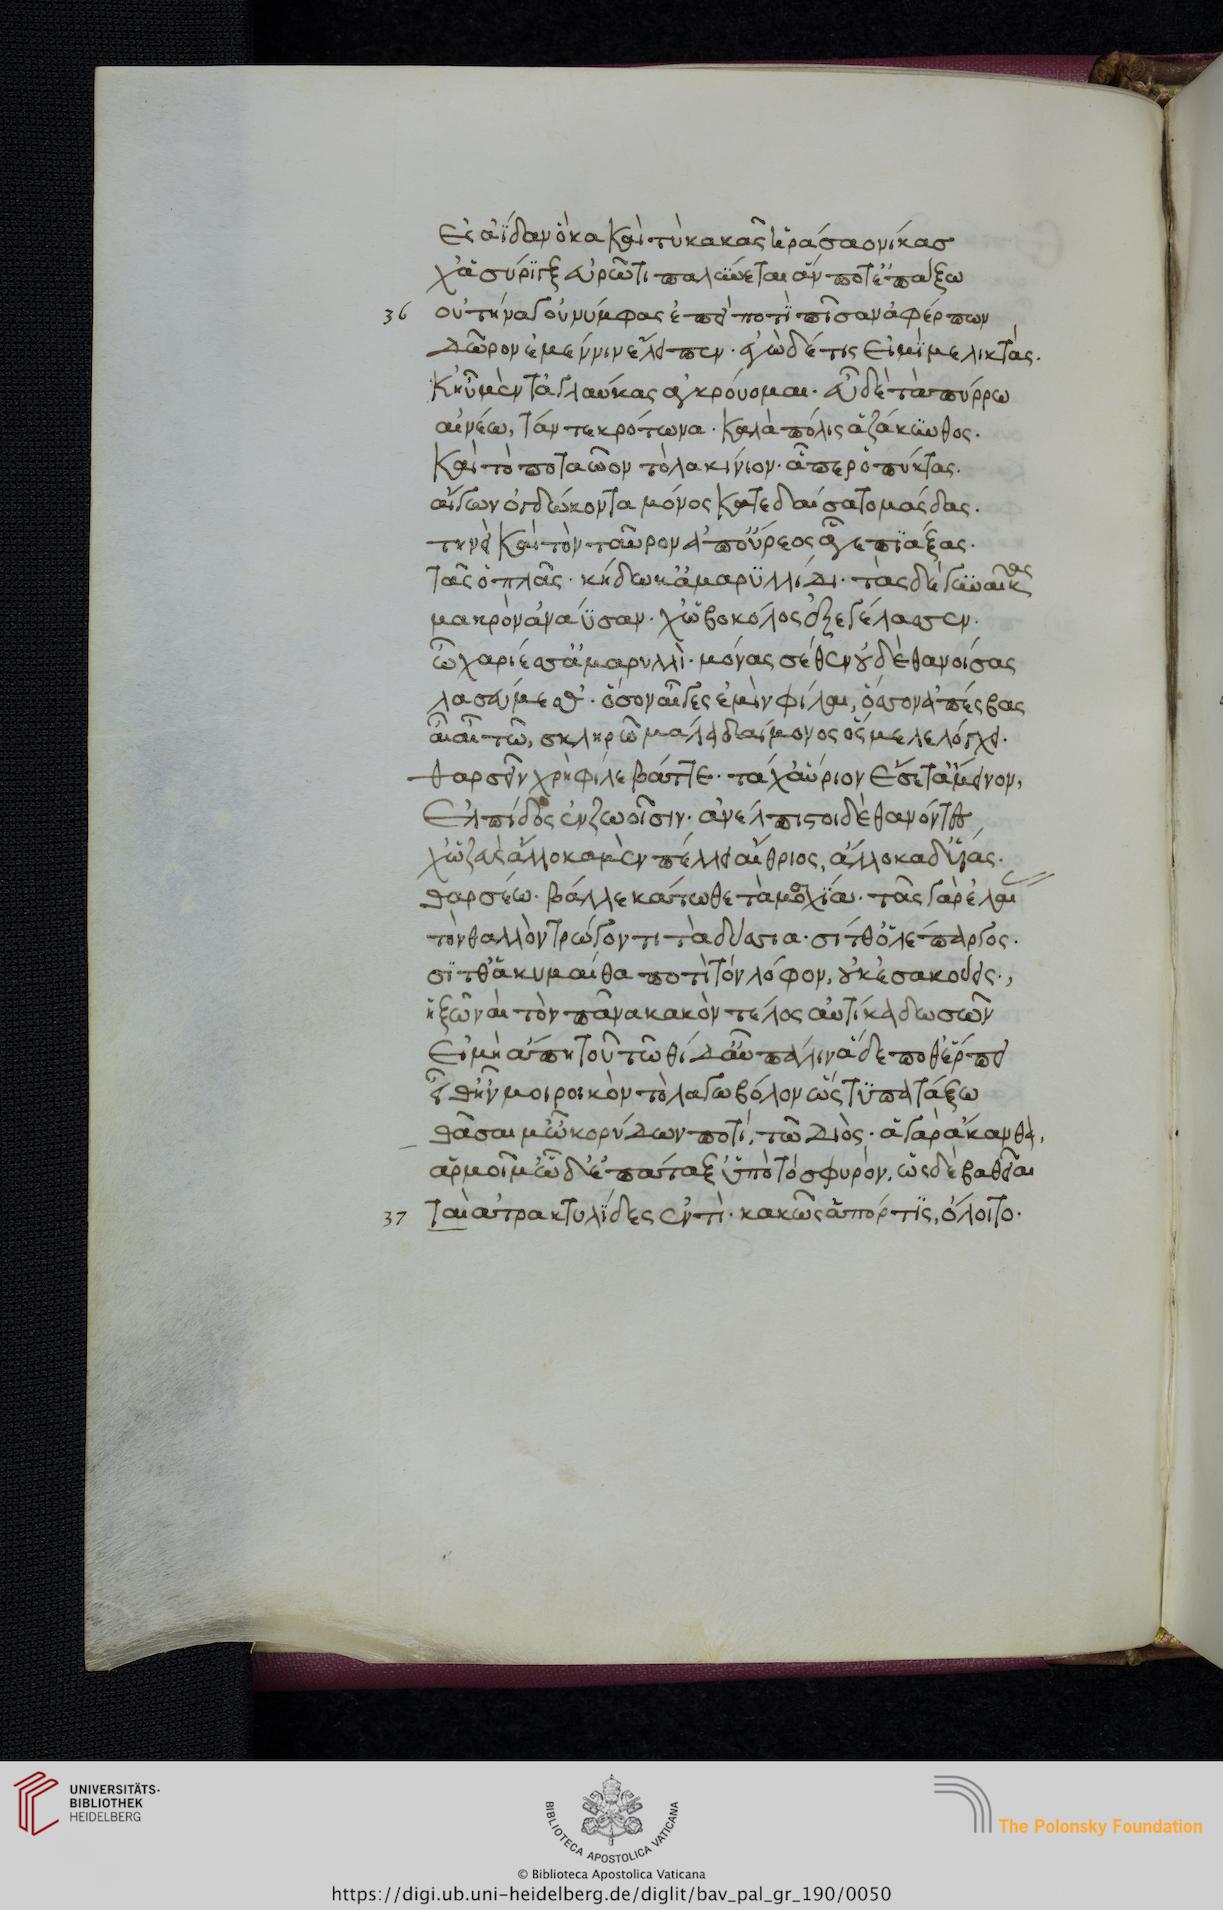 Εἰς ἀΐδαν ὅκα καὶ τὺ κακᾶς ἠράσαο νίκας
χἀ σύριγξ εὐρῶτι παλύνεται ἅν ποτ' ἔπαξω
36 οὐ τήνα γ' οὐ νύμφας ἐπεὶ ποτὶ πῖσαν ἀφέρπων
Δῶρον ἐμέ νιν ἔλειπεν· ἐγὼ δέ τις εἰμὶ μελικτάς.
Κηὖ μὲν τὰ γλαύκας ἀγκρούομαι· εὖ δὲ τὰ πύρρω
αἰνέω, τάν τε κρότωνα· καλὰ πόλις ἅ ζάκυνθος.
Καὶ τὸ ποταῶον τὸ λακίνιον· ἇπερ ὁ πύκτας.
αἴγων ὀγδώκοντα μόνος κατεδαίσατο μάσδας.
τηνεὶ καὶ τὸν ταῦρον ἀπ' οὔρεος ἆγε πϊάξας.
Τᾶς ὁπλᾶς· κἤδωκ' ἀμαρϋλλίδι· τὰς δὲ γυναῖκας
μακρὸν ἀνάϋσαν· χὦ βοκόλος ἐξεγέλασσεν.
ὦ χαρίεσσ' ἀμαρυλλὶ· μόνας σέθεν οὐδὲ θανοίσας
λασεύμεσθ'· ὅσον αἶγες ἐμὶν φίλαι, ὅσσον ἀπέσβας
αἶ αἶ τῶ, σκληρῶ μάλα δαίμονος ὅς με λελόγχει.
θαρσεῖν χρὴ φίλε βάττε· τάχ' αὔριον ἔσετ' ἄμεινον,
Ἐλπίδες ἐν ζωοῖσιν· ἀνέλπιστοι δὲ θανόντες
χὦ ζεὺς ἄλλοκα μὲν πέλλει αἴθριος, ἄλλοκα δ' ὕει.
θαρσέω· βάλλε κάτωθε τὰ μοσχία· τᾶς γὰρ ἐλαί
τὸν θαλλὸν τρώγοντι τὰ δύσσια· σίτθ' ὁ λέπαργος.
σίτθ' ἁ κυμαίθα ποτὶ τὸν λόφον, οὐκ ἐσακούεις;
ἡξῶ ναὶ τὸν πᾶνα κακὸν τέλος αὐτίκα δωσῶν
Εἰ μὴ ἄπει τουτῶθι Δ' αὖ πάλιν ἅδε ποθέρπει
εἶθ' ἦν μοι ροικὸν τὸ λαγωβόλον ὥς τὺ πατάξω
θᾶσαι μ' ὦ κορύδων ποτὶ, τῶ Διὸς· ἁ γὰρ ἄκανθα,
ἁρμοῖ μ' ὧδ' ἐπάταξ' ὑπὸ τὸ σφυρὸν, ὡς δὲ βαθεῖαι
37 Ταὶ ἀτρακτυλΐδες ἐντὶ· κακῶς ἁ πόρτϊς, ὄλοιτο·
UNIVERSITÄTS-
BIBLIOTHEK
HEIDELBERG
BIBLIOTECA APOSTOLICA VATICANA
The Polonsky Foundation
© Biblioteca Apostolica Vaticana
https://digi.ub.uni-heidelberg.de/diglit/bav_pal_gr_190/0050